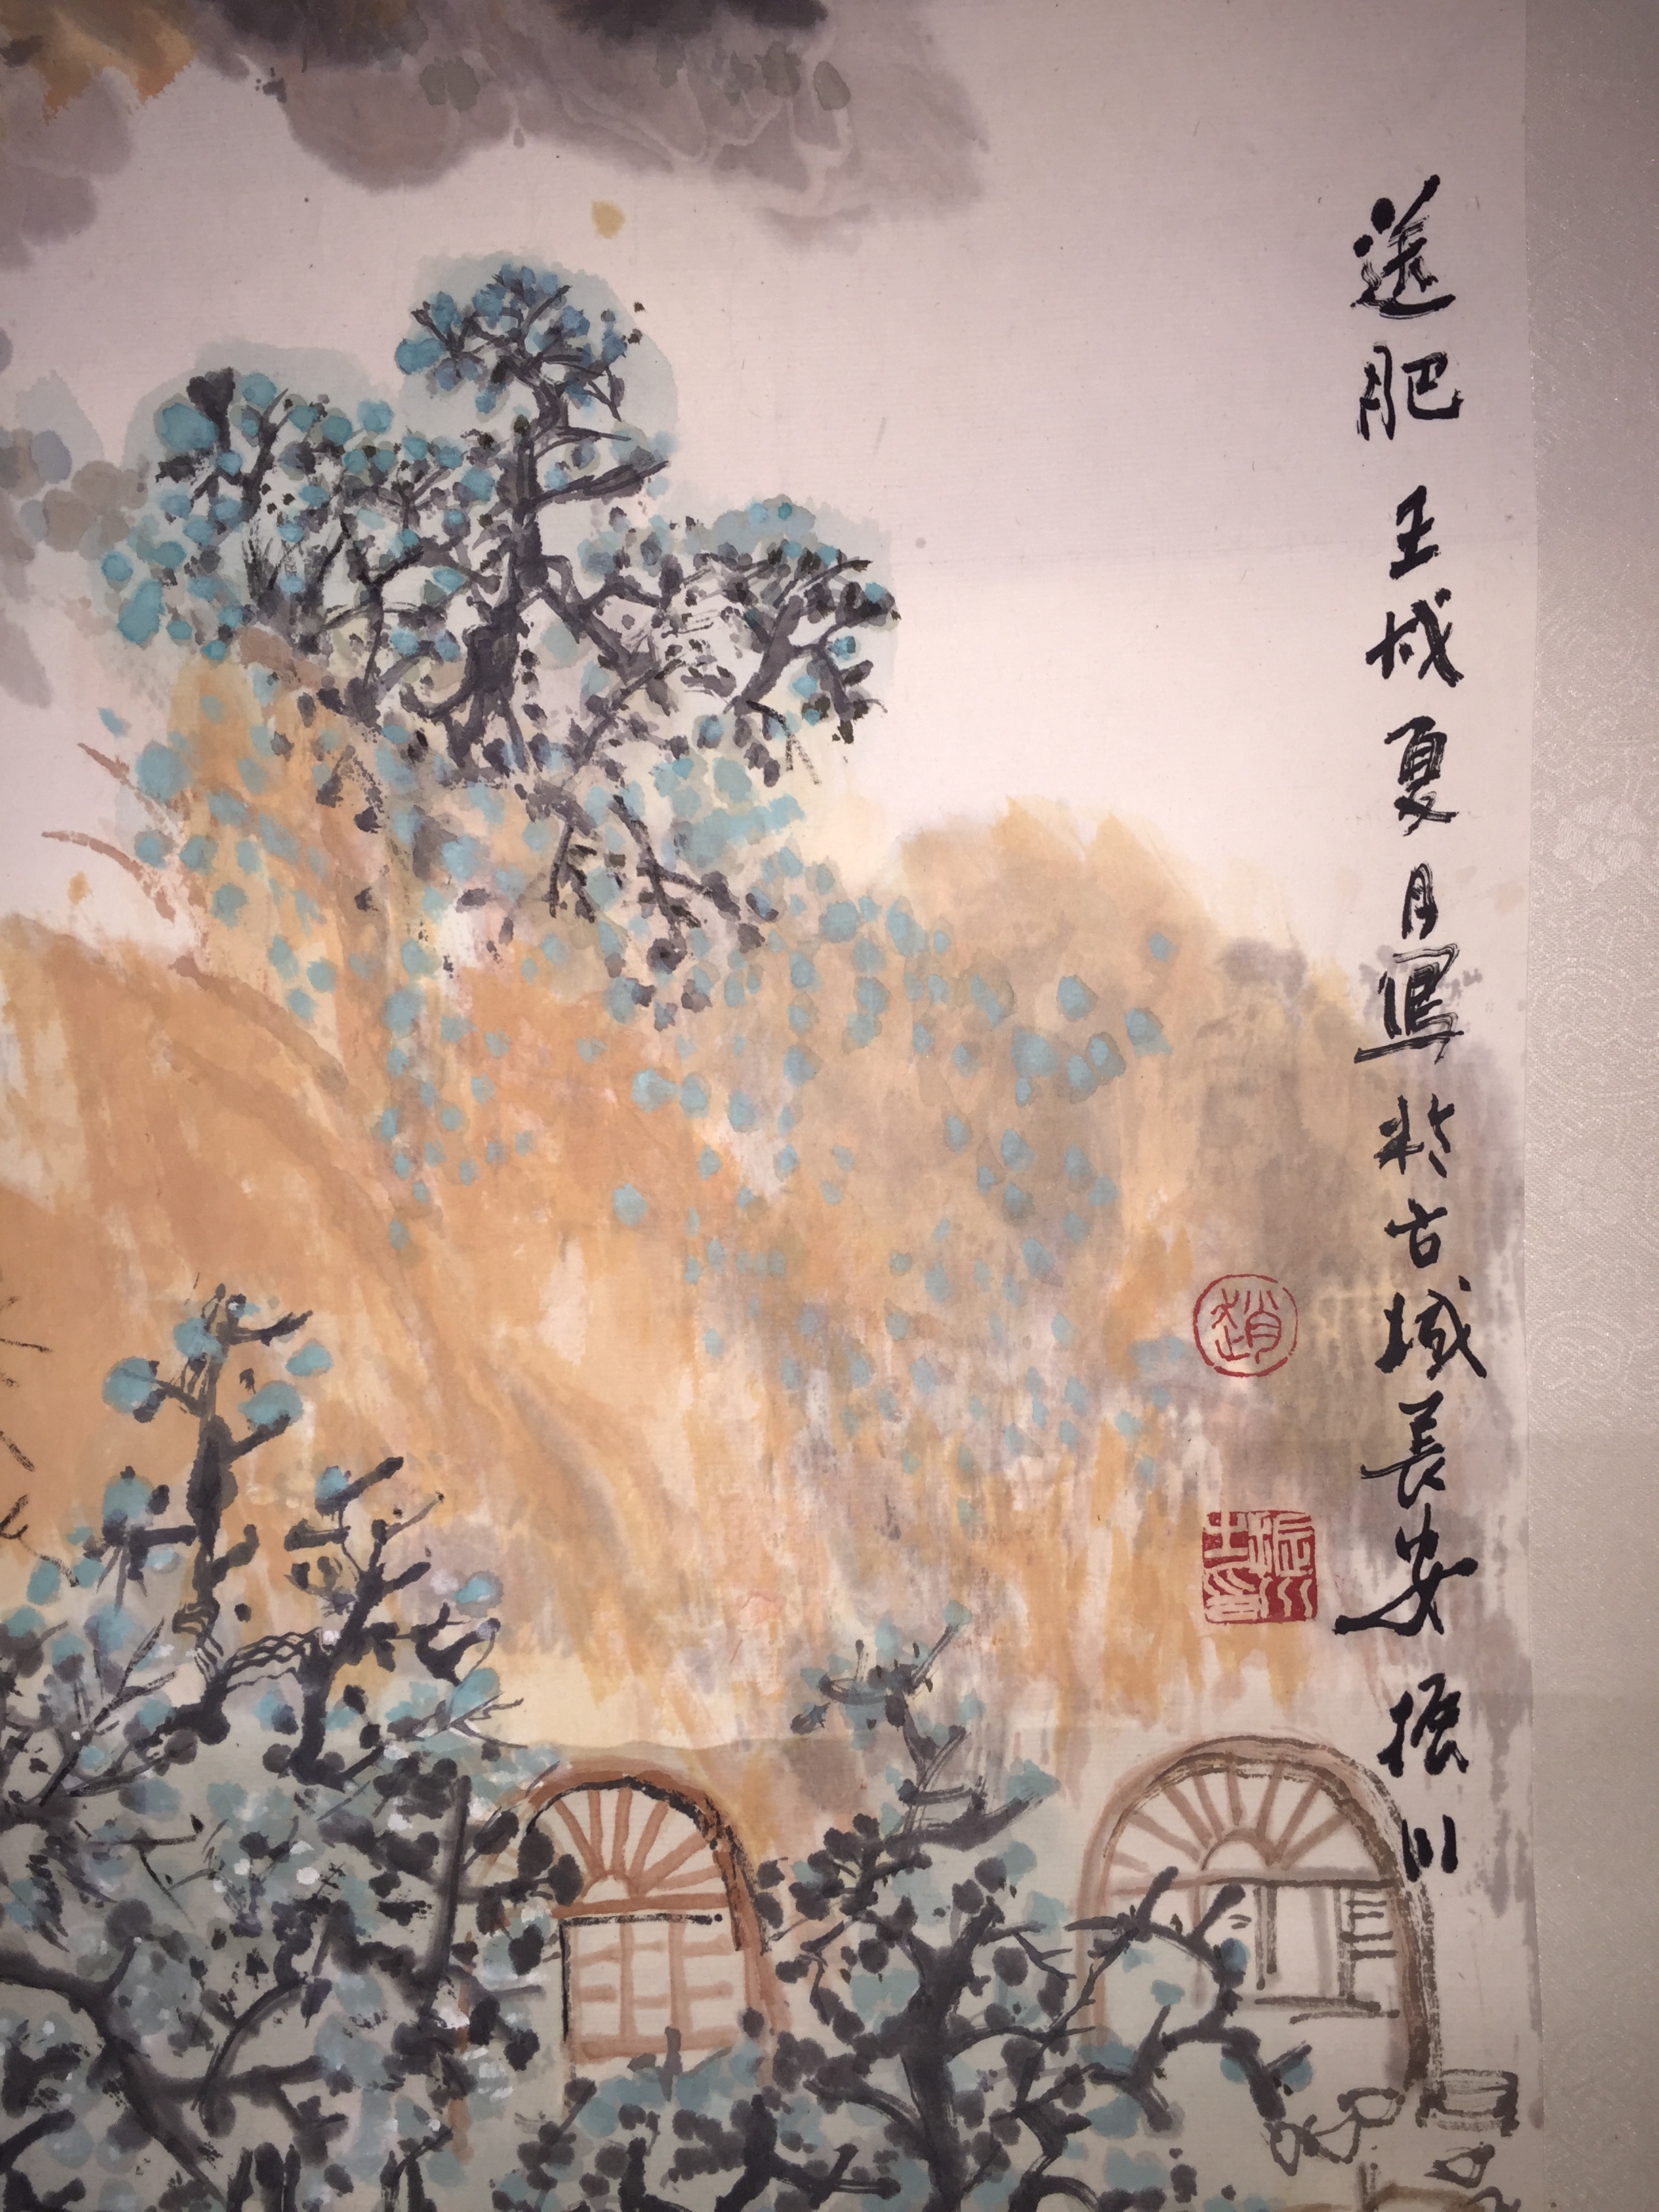 送肥 壬戌夏月写於古城長安 振川
趙
振川之印